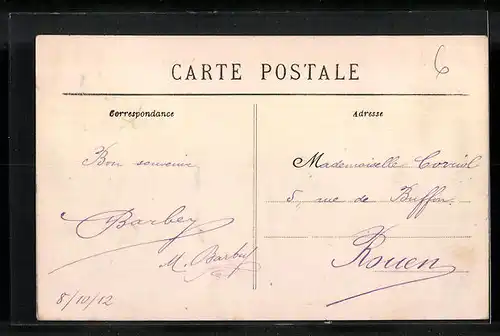 6
CARTE POSTALE
Correspondance
Bon souvenir
Barbey
M. Barbey
8/10/12
Adresse
Mademoiselle
5, rue de Buffon.
Rouen